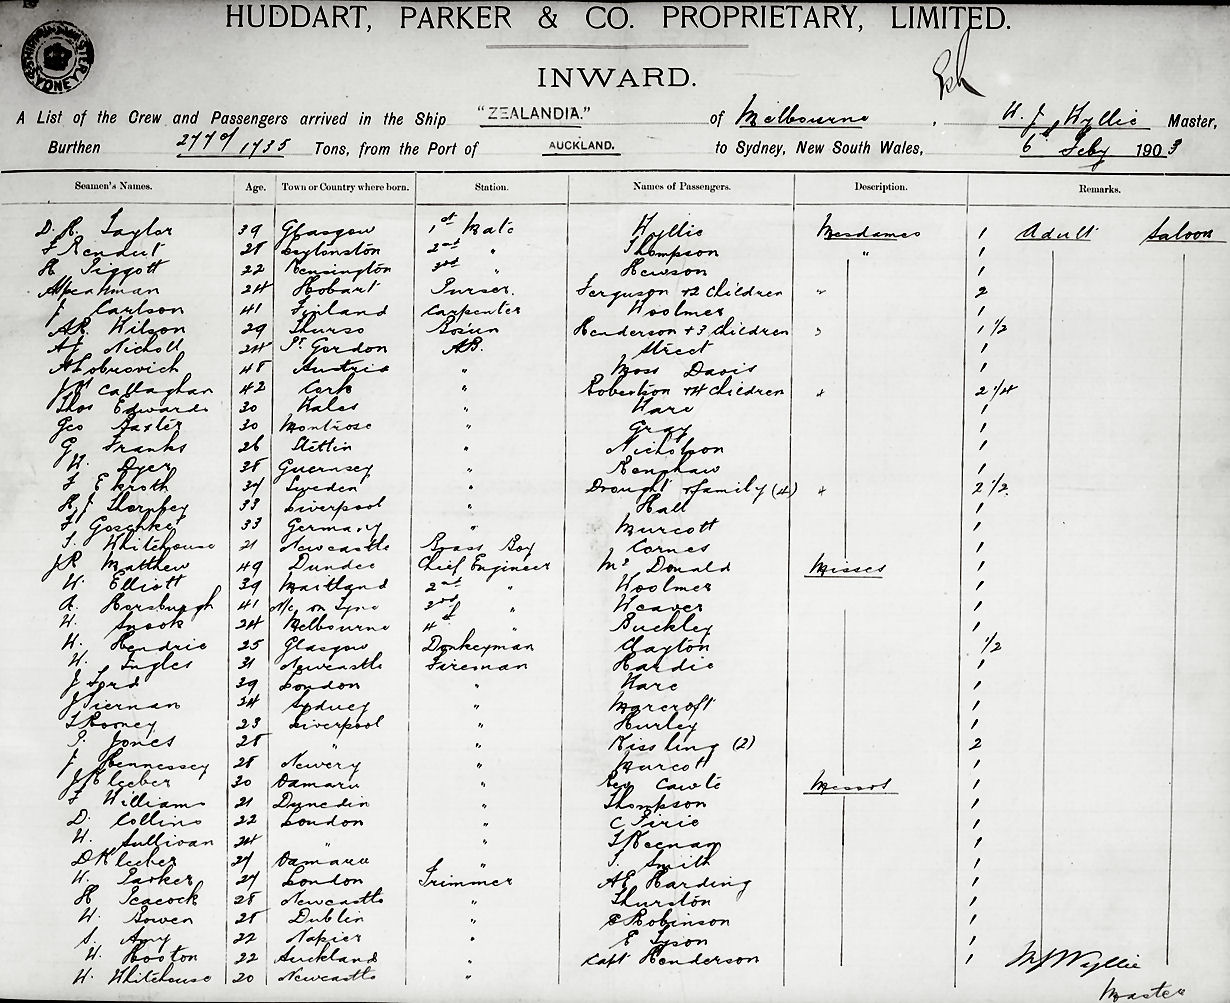 HUDDART, PARKER & CO. PROPRIETARY, LIMITED.
INWARD.
A List of the Crew and Passengers arrived in the Ship "ZEALANDIA." of Melbourne, W. J. Wyllie Master,
Burthen 2770/1735 Tons, from the Port of AUCKLAND. to Sydney, New South Wales, 6 Feby 1903
Seamen's Names. Age. Town or Country where born. Station. Names of Passengers. Description. Remarks.
D. R. Taylor 39 Glasgow 1st Mate Wyllie Mesdames 1 Adult Saloon
F Rendut 28 Leytonston 2nd " Thompson " 1
H Piggott 22 Kensington 3rd " Hewson 1
24 Hobart Purser Ferguson + 2 Children " 2
J Carlson 41 Finland Carpenter Woolmer 1
AR Wilson 29 Thurso Bosun Henderson + 3 Children " 1 1/2
AJ Nicholl 24 Pt Gordon AB. Street 1
48 Austria " Moss Davis 1
JH Callaghan 42 Cork " Robertson + 4 Children " 2 1/4
Thos Edwards 30 Wales " Ware 1
Geo Baxter 30 Montrose " Gray 1
G Franks 26 Stettin " Nicholson 1
W. Dyer 38 Guernsey " Renshaw 1
F Ekroth 34 Sweden " Drought + family (4) " 2 1/2
R J Thornbey 33 Liverpool " Hall 1
F Goschke 33 Germany " Murcott 1
T. Whitehouse 21 Newcastle Brass Boy Cornes 1
JR Matthew 49 Dundee Chief Engineer Mc Donald Misses 1
W. Elliott 39 Maitland 2nd " Woolmer 1
A. Horsburgh 41 N/C on Tyne 3rd " Weaver 1
W. Snook 24 Melbourne 4th " Buckley 1
W. Hendrie 25 Glasgow Donkeyman Clayton 1/2
W. Ingles 31 Newcastle Fireman Hardie 1
J Ford 39 London " Ware 1
J Tiernan 34 Sydney " Marcroft 1
T Rooney 23 Liverpool " Hurley 1
P. Jones 28 " " Kissling (2) 2
J Hennessey 28 Newry " Murcott 1
J Kleeber 30 Oamaru " Rev Cawte Messrs 1
F Williams 21 Dunedin " Thompson 1
D. Collins 22 London " C Pirie 1
W. Sullivan 24 " " T Keenan 1
D Kleeber 27 Oamaru " T. Smith 1
W. Parker 27 London Trimmer AE Harding 1
H Peacock 28 Newcastle " Thurston 1
W. Bowen 28 Dublin " C Robinson 1
S. Amy 22 Napier " E Tyson 1
W. Hooton 22 Auckland " Capt Henderson 1 WJ Wyllie
W. Whitehouse 20 Newcastle " Master